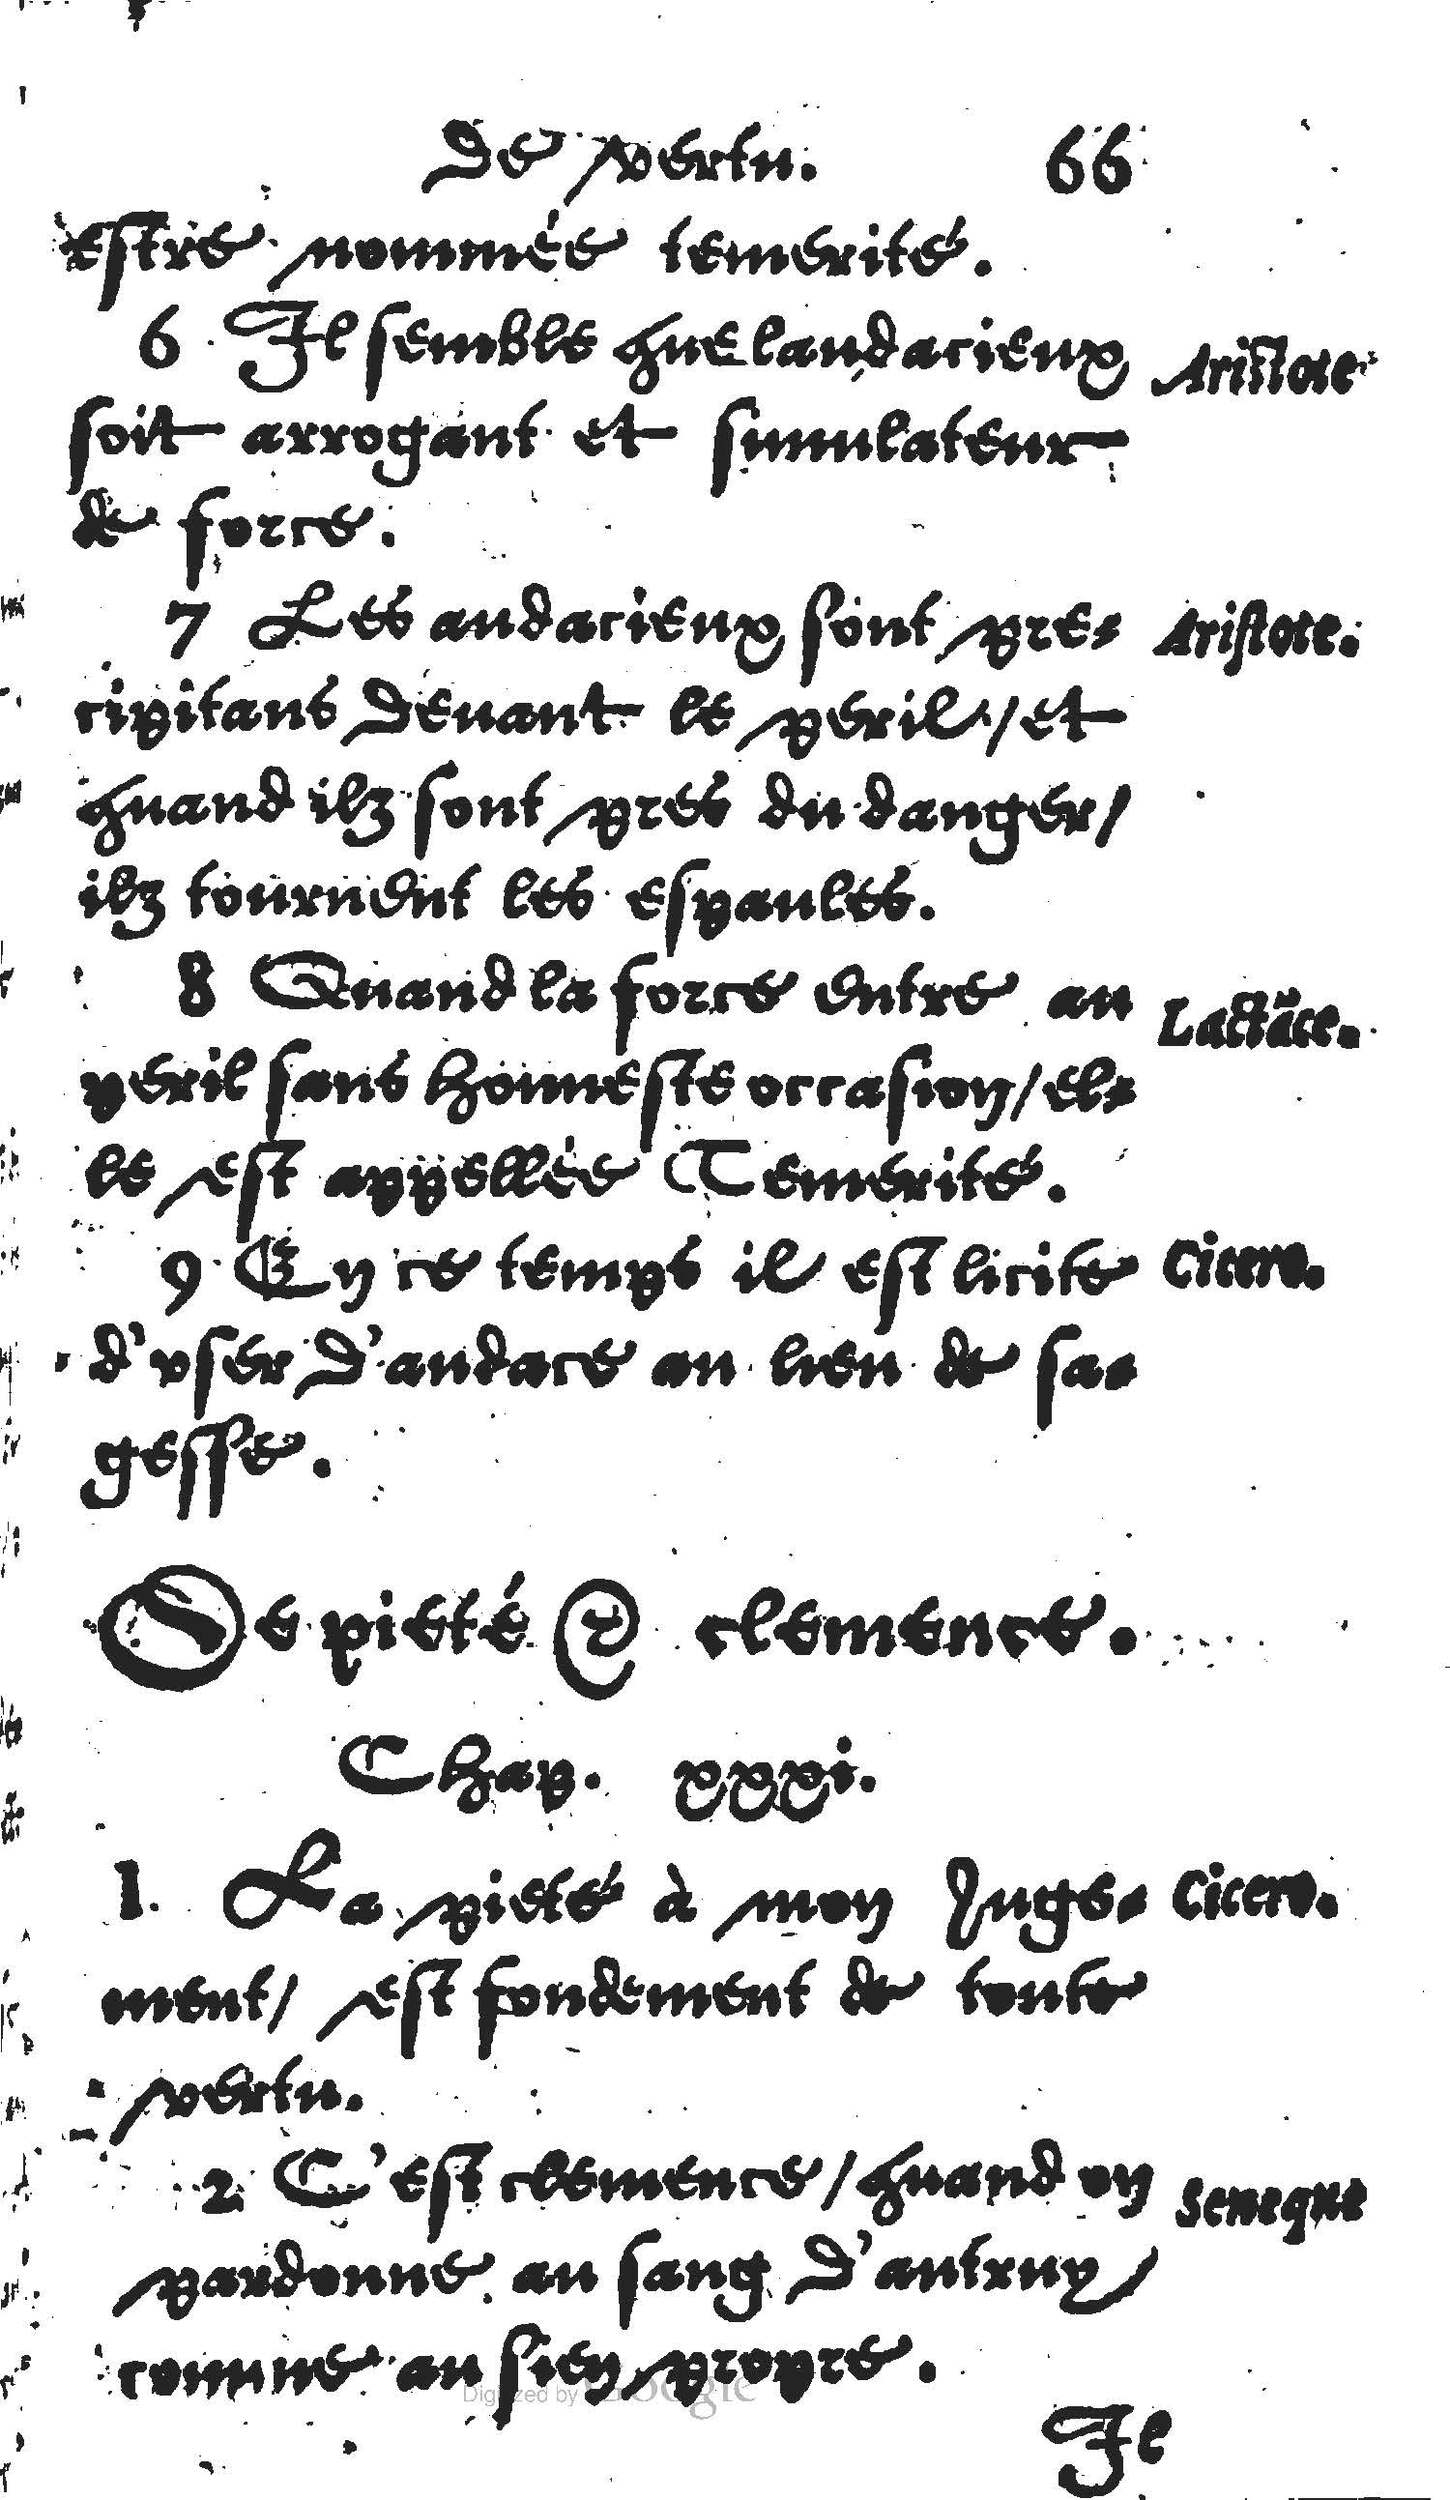 De vertu. 66
estre nommée temerité.
6 Il semble que laudacieux Aristote
soit arrogant et simulateur
de force.
7 Les audacieux sont pre- Aristote.
cipitans devant le peril, / et
quand ilz sont pres du danger /
ilz tournent les espaules.
8 Quand la force entre au Lactāce.
peril sans honneste occasion / el-
le est appellée Temerité.
9 En ce temps il est licite Cicero.
d'vser d'audace au lieu de sa-
gesse.
De pieté & clemence.
Chap. xxxi.
1. La pieté à mon Juge- Cicero.
ment / est fondement de toute
vertu.
2 C'est clemence / quand on Seneque
pardonne au sang d'autruy /
comme au sien propre.
Digitized by Google
Je